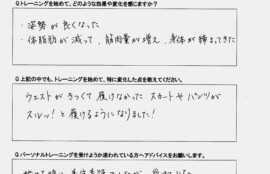 Q トレーニングを始めて、どのような効果や変化を感じますか？
・姿勢が良くなった
・体脂肪が減って、筋肉量が増え、身体が締まってきた
Q 上記の中でも、トレーニングを始めて、特に変化した点を教えてください。
ウエストがきつくて履けなかったスカートやパンツが
スルッ！と履けるようになりました！
Q パーソナルトレーニングを受けようか迷われている方へアドバイスをお願いします。